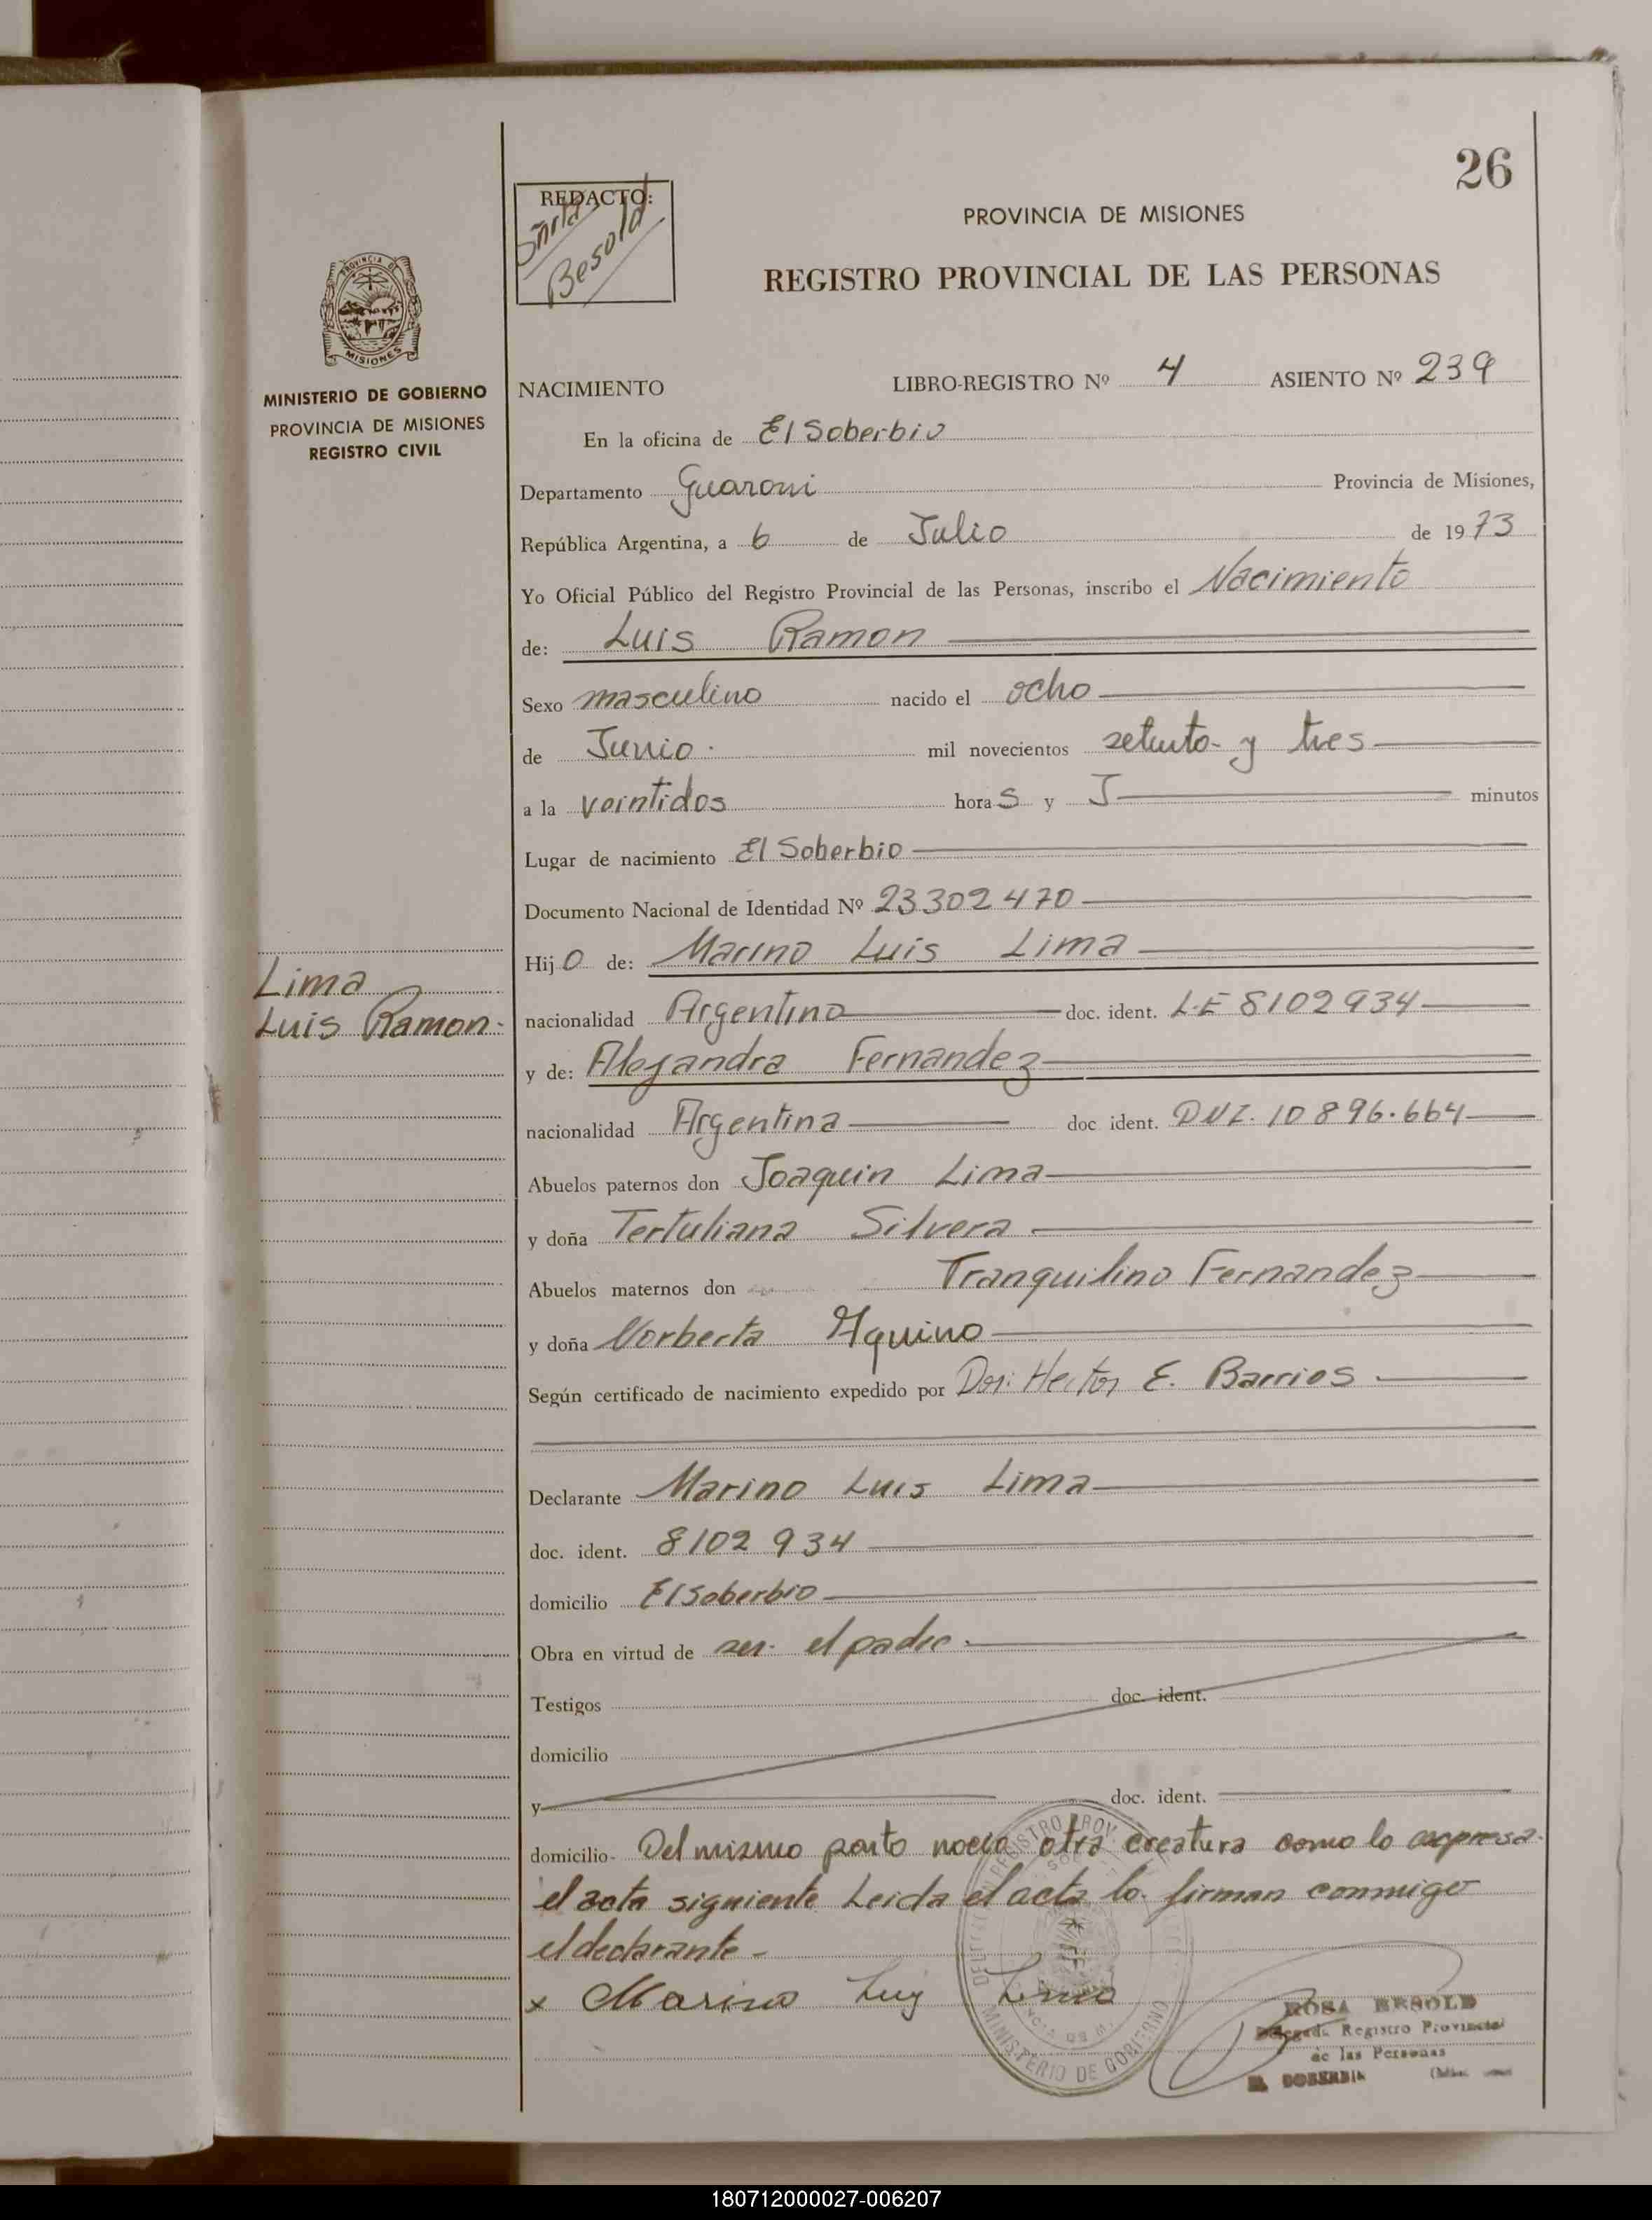 26
REDACTO:
Srita
Besold
PROVINCIA DE MISIONES
REGISTRO PROVINCIAL DE LAS PERSONAS
PROVINCIA DE
MISIONES
MINISTERIO DE GOBIERNO
PROVINCIA DE MISIONES
REGISTRO CIVIL
NACIMIENTO LIBRO-REGISTRO Nº 4 ASIENTO Nº 239
En la oficina de El Soberbio
Departamento Guarani Provincia de Misiones,
República Argentina, a 6 de Julio de 1973
Yo Oficial Público del Registro Provincial de las Personas, inscribo el Nacimiento
de: Luis Ramon
Sexo masculino nacido el ocho
de Junio. mil novecientos setenta y tres
a la veintidos horas y minutos
Lugar de nacimiento El Soberbio
Documento Nacional de Identidad Nº 23302470
Hijo de: Marino Luis Lima
Lima
Luis Ramon-
nacionalidad Argentino doc. ident. L.E 8102934
y de: Alejandra Fernandez
nacionalidad Argentina doc ident. DNI. 10896.664
Abuelos paternos don Joaquin Lima
y doña Tertuliana Silvera
Abuelos maternos don Tranquilino Fernandez
y doña Norberta Aquino
Según certificado de nacimiento expedido por Dor: Hector E. Barrios
Declarante Marino Luis Lima
doc. ident. 8102934
domicilio El Soberbio
Obra en virtud de ser el padre
Testigos doc. ident.
domicilio
y doc. ident.
domicilio- Del mismo parto nacio otra creatura como lo expresa
el acta siguiente Leida el acta lo firman conmigo
el declarante-
x Marino Luis Lima
MINISTERIO DE GOBIERNO
ROSA BESOLD
Delegada Registro Provincial
de las Personas
EL SOBERBIO
180712000027-006207